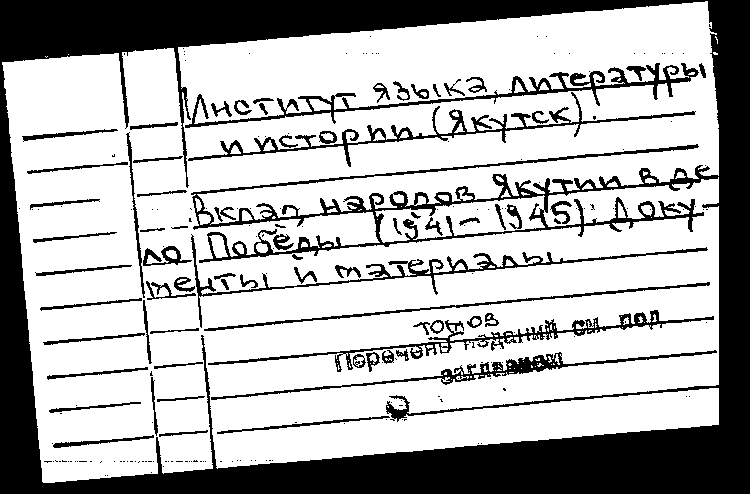 Институт языка, литературы
и истории. (Якутск).
Вклад народов Якутии в де
ло Победы (1941-1945): Доку-
менты и материалы.
томов
Перечень изданий см. под
заглавием